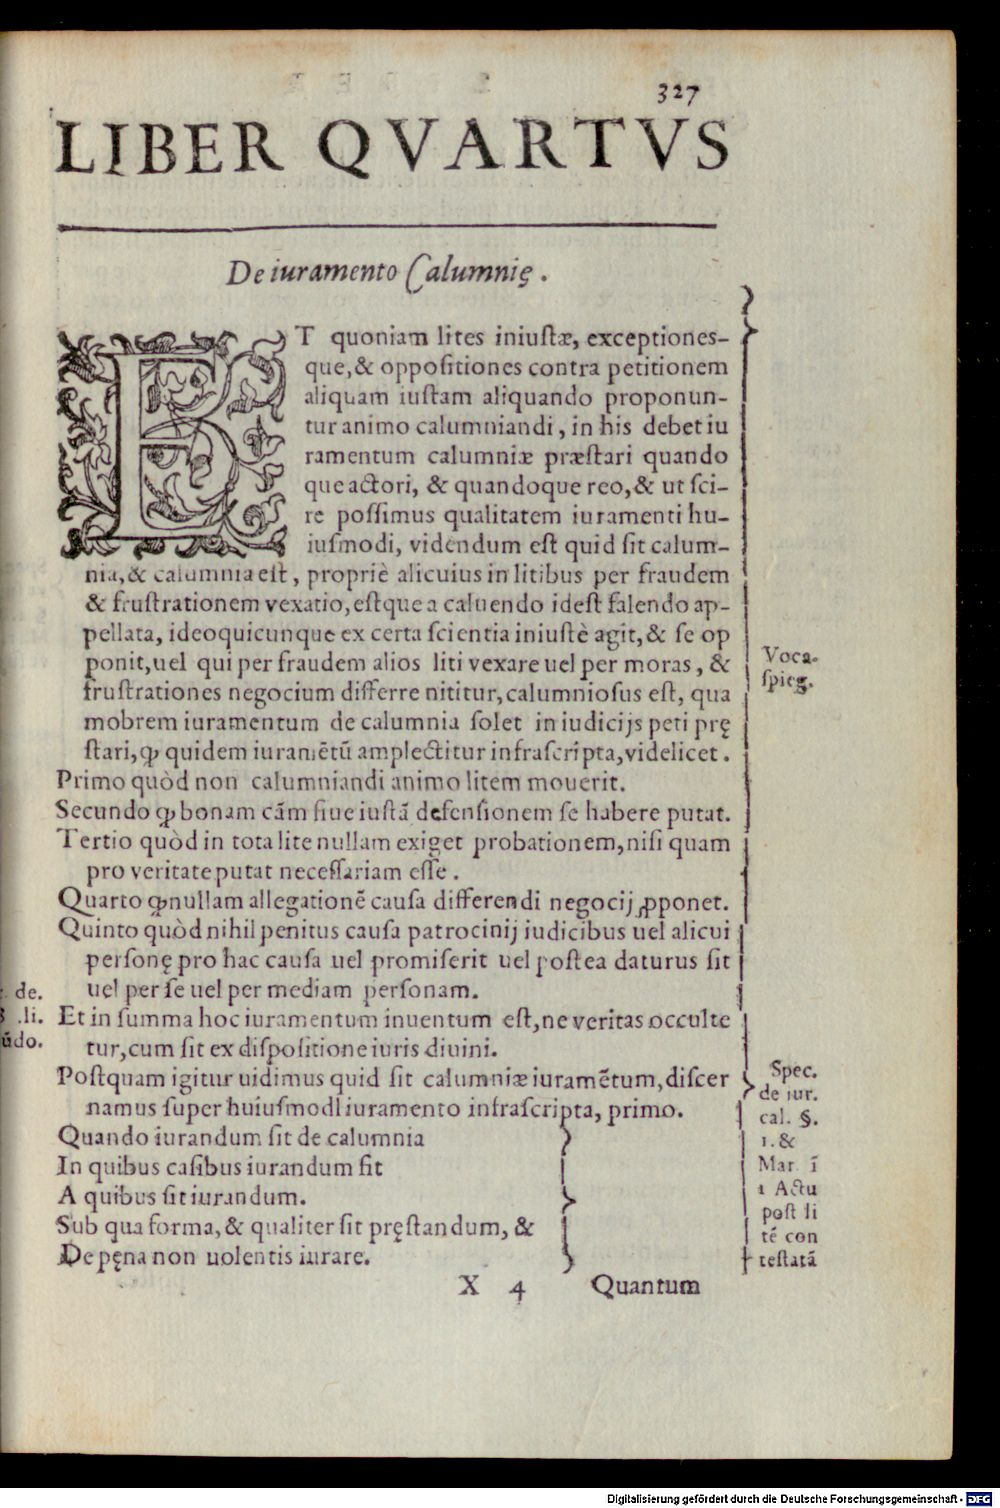 327
LIBER QVARTVS
De iuramento Calumnię.
ET quoniam lites iniustæ, exceptiones-
que, & oppositiones contra petitionem
aliquam iustam aliquando proponun-
tur animo calumniandi, in his debet iu
ramentum calumniæ præstari quando
que actori, & quandoque reo, & ut sci-
re possimus qualitatem iuramenti hu-
iusmodi, videndum est quid sit calum-
nia, & calumnia est, propriè alicuius in litibus per fraudem
& frustrationem vexatio, estque a caluendo idest falendo ap-
pellata, ideoquicunque ex certa scientia iniustè agit, & se op
ponit, uel qui per fraudem alios liti vexare uel per moras, &
frustrationes negocium differre nititur, calumniosus est, qua
mobrem iuramentum de calumnia solet in iudicijs peti prę
stari, ꝙ quidem iuramētū amplectitur infrascripta, videlicet.
Primo quòd non calumniandi animo litem mouerit.
Secundo ꝙ bonam cām siue iustā defensionem se habere putat.
Tertio quòd in tota lite nullam exiget probationem, nisi quam
pro veritate putat necessariam esse.
Quarto ꝙ nullam allegationē causa differendi negocij ꝓponet.
Quinto quòd nihil penitus causa patrocinij iudicibus uel alicui
personę pro hac causa uel promiserit uel postea daturus sit
uel per se uel per mediam personam.
Et in summa hoc iuramentum inuentum est, ne veritas occulte
tur, cum sit ex dispositione iuris diuini.
Postquam igitur uidimus quid sit calumniæ iuramētum, discer
namus super huiusmodi iuramento infrascripta, primo.
Quando iurandum sit de calumnia
In quibus casibus iurandum sit
A quibus sit iurandum.
Sub qua forma, & qualiter sit pręstandum, &
De pęna non uolentis iurare.
X 4 Quantum
Voca.
spieg.
de.
.li.
ūdo.
Spec.
de iur.
cal. §.
1. &
Mar. ī
1 Actu
post li
tē con
testatā
Digitalisierung gefördert durch die Deutsche Forschungsgemeinschaft - DFG